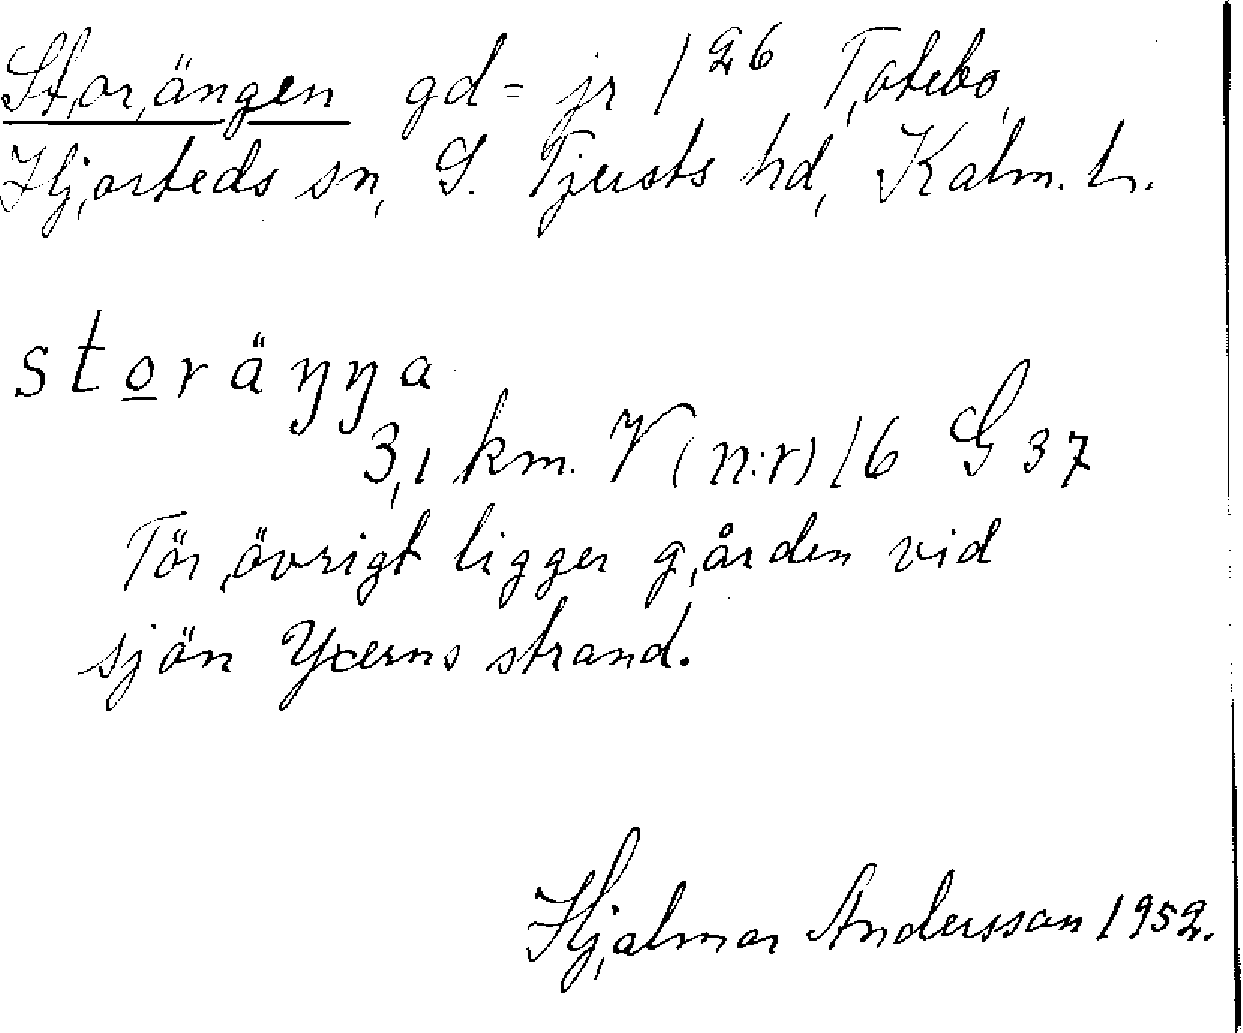 Storängen gd = jr 1²⁶ Totebo,
Hjorteds sn, S. Tjusts hd, Kalm. l.
storäŋŋa
3,1 km. V (n:r) 16 G 37
För övrigt ligger gården vid
sjön Yxerns strand.
Hjalmar Andersson 1952.